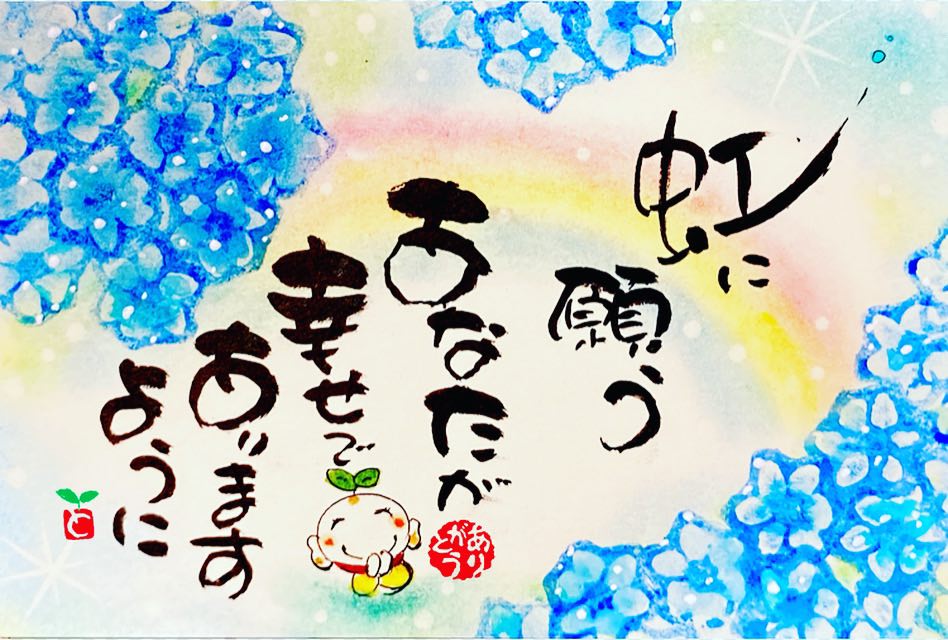 虹に
願う
あなたが
幸せで
あります
ように
ありがとう
と